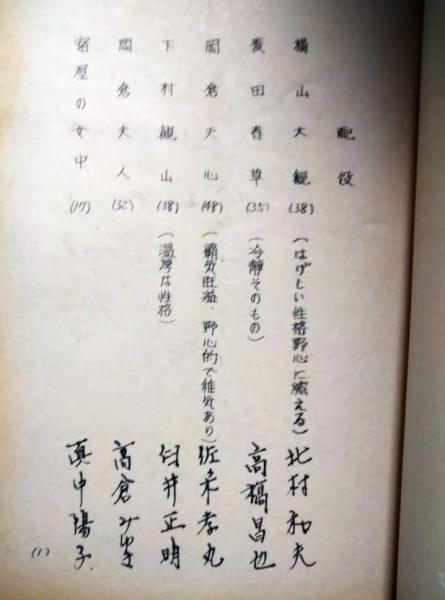 配役
横山大観(38)(はげしい性格野心に燃える)北村和夫
菱田春草(35)(冷静そのもの)高橋昌也
岡倉天心(48)(覇気旺溢、野心的で稚気あり)佐々木孝丸
下村観山(38)(温厚な性格)臼井正明
岡倉夫人(32)高倉みゆき
宿屋の女中(17)真中陽子
(1)